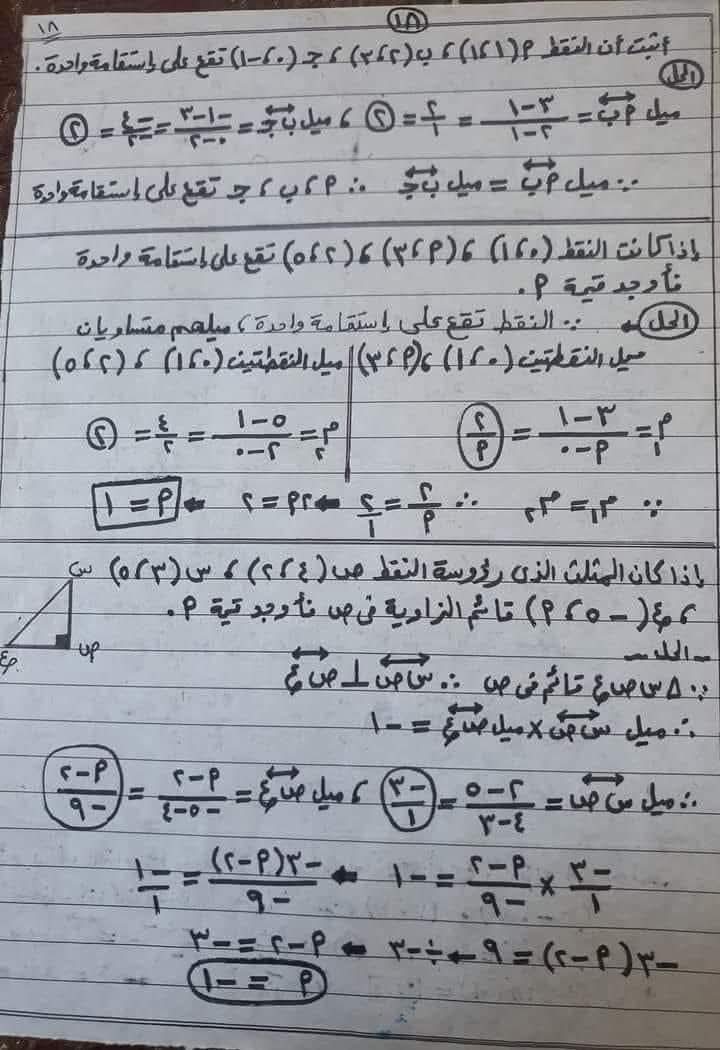 ١٨ ١٨
أثبت أن النقط م (١،١)، ب (٢،٣)، جـ (٠،-١) تقع على إستقامة واحدة.
الحل
ميل م ب = ٣-١ / ٢-١ = ٢/١ = ٢ ، ميل ب جـ = -١-٣ / ٠-٢ = -٤/-٢ = ٢
∵ ميل م ب = ميل ب جـ ∴ م، ب، جـ تقع على إستقامة واحدة
إذا كانت النقط (٠،١)، (م،٣)، (٢،٥) تقع على إستقامة واحدة
فأوجد قيمة م.
الحل ∵ النقط تقع على إستقامة واحدة، ميلهم متساويان
ميل النقطتين (٠،١)، (م،٣) | ميل النقطتين (٠،١)، (٢،٥)
م١ = ٣-١ / م-٠ = ٢/م | م٢ = ٥-١ / ٢-٠ = ٤/٢ = ٢
∵ م١ = م٢ ∴ ٢/م = ٢/١ ← ٢م = ٢ ← م = ١
إذا كان المثلث الذى رؤوسة النقط ص (٤،٢)، س (٣،٥)
، ع (-٥،م) قائم الزاوية فى ص فأوجد قيمة م.
س
ص
ع
- الحل -
∵ Δ س ص ع قائم فى ص ∴ س ص ⊥ ص ع
∴ ميل س ص × ميل ص ع = -١
∴ ميل س ص = ٢-٥ / ٤-٣ = -٣/١ ، ميل ص ع = م-٢ / -٥-٤ = م-٢ / -٩
-٣/١ × م-٢ / -٩ = -١ ← -٣(م-٢) / -٩ = -١/١
-٣(م-٢) = ٩ ← ÷-٣ ← م-٢ = -٣
م = -١